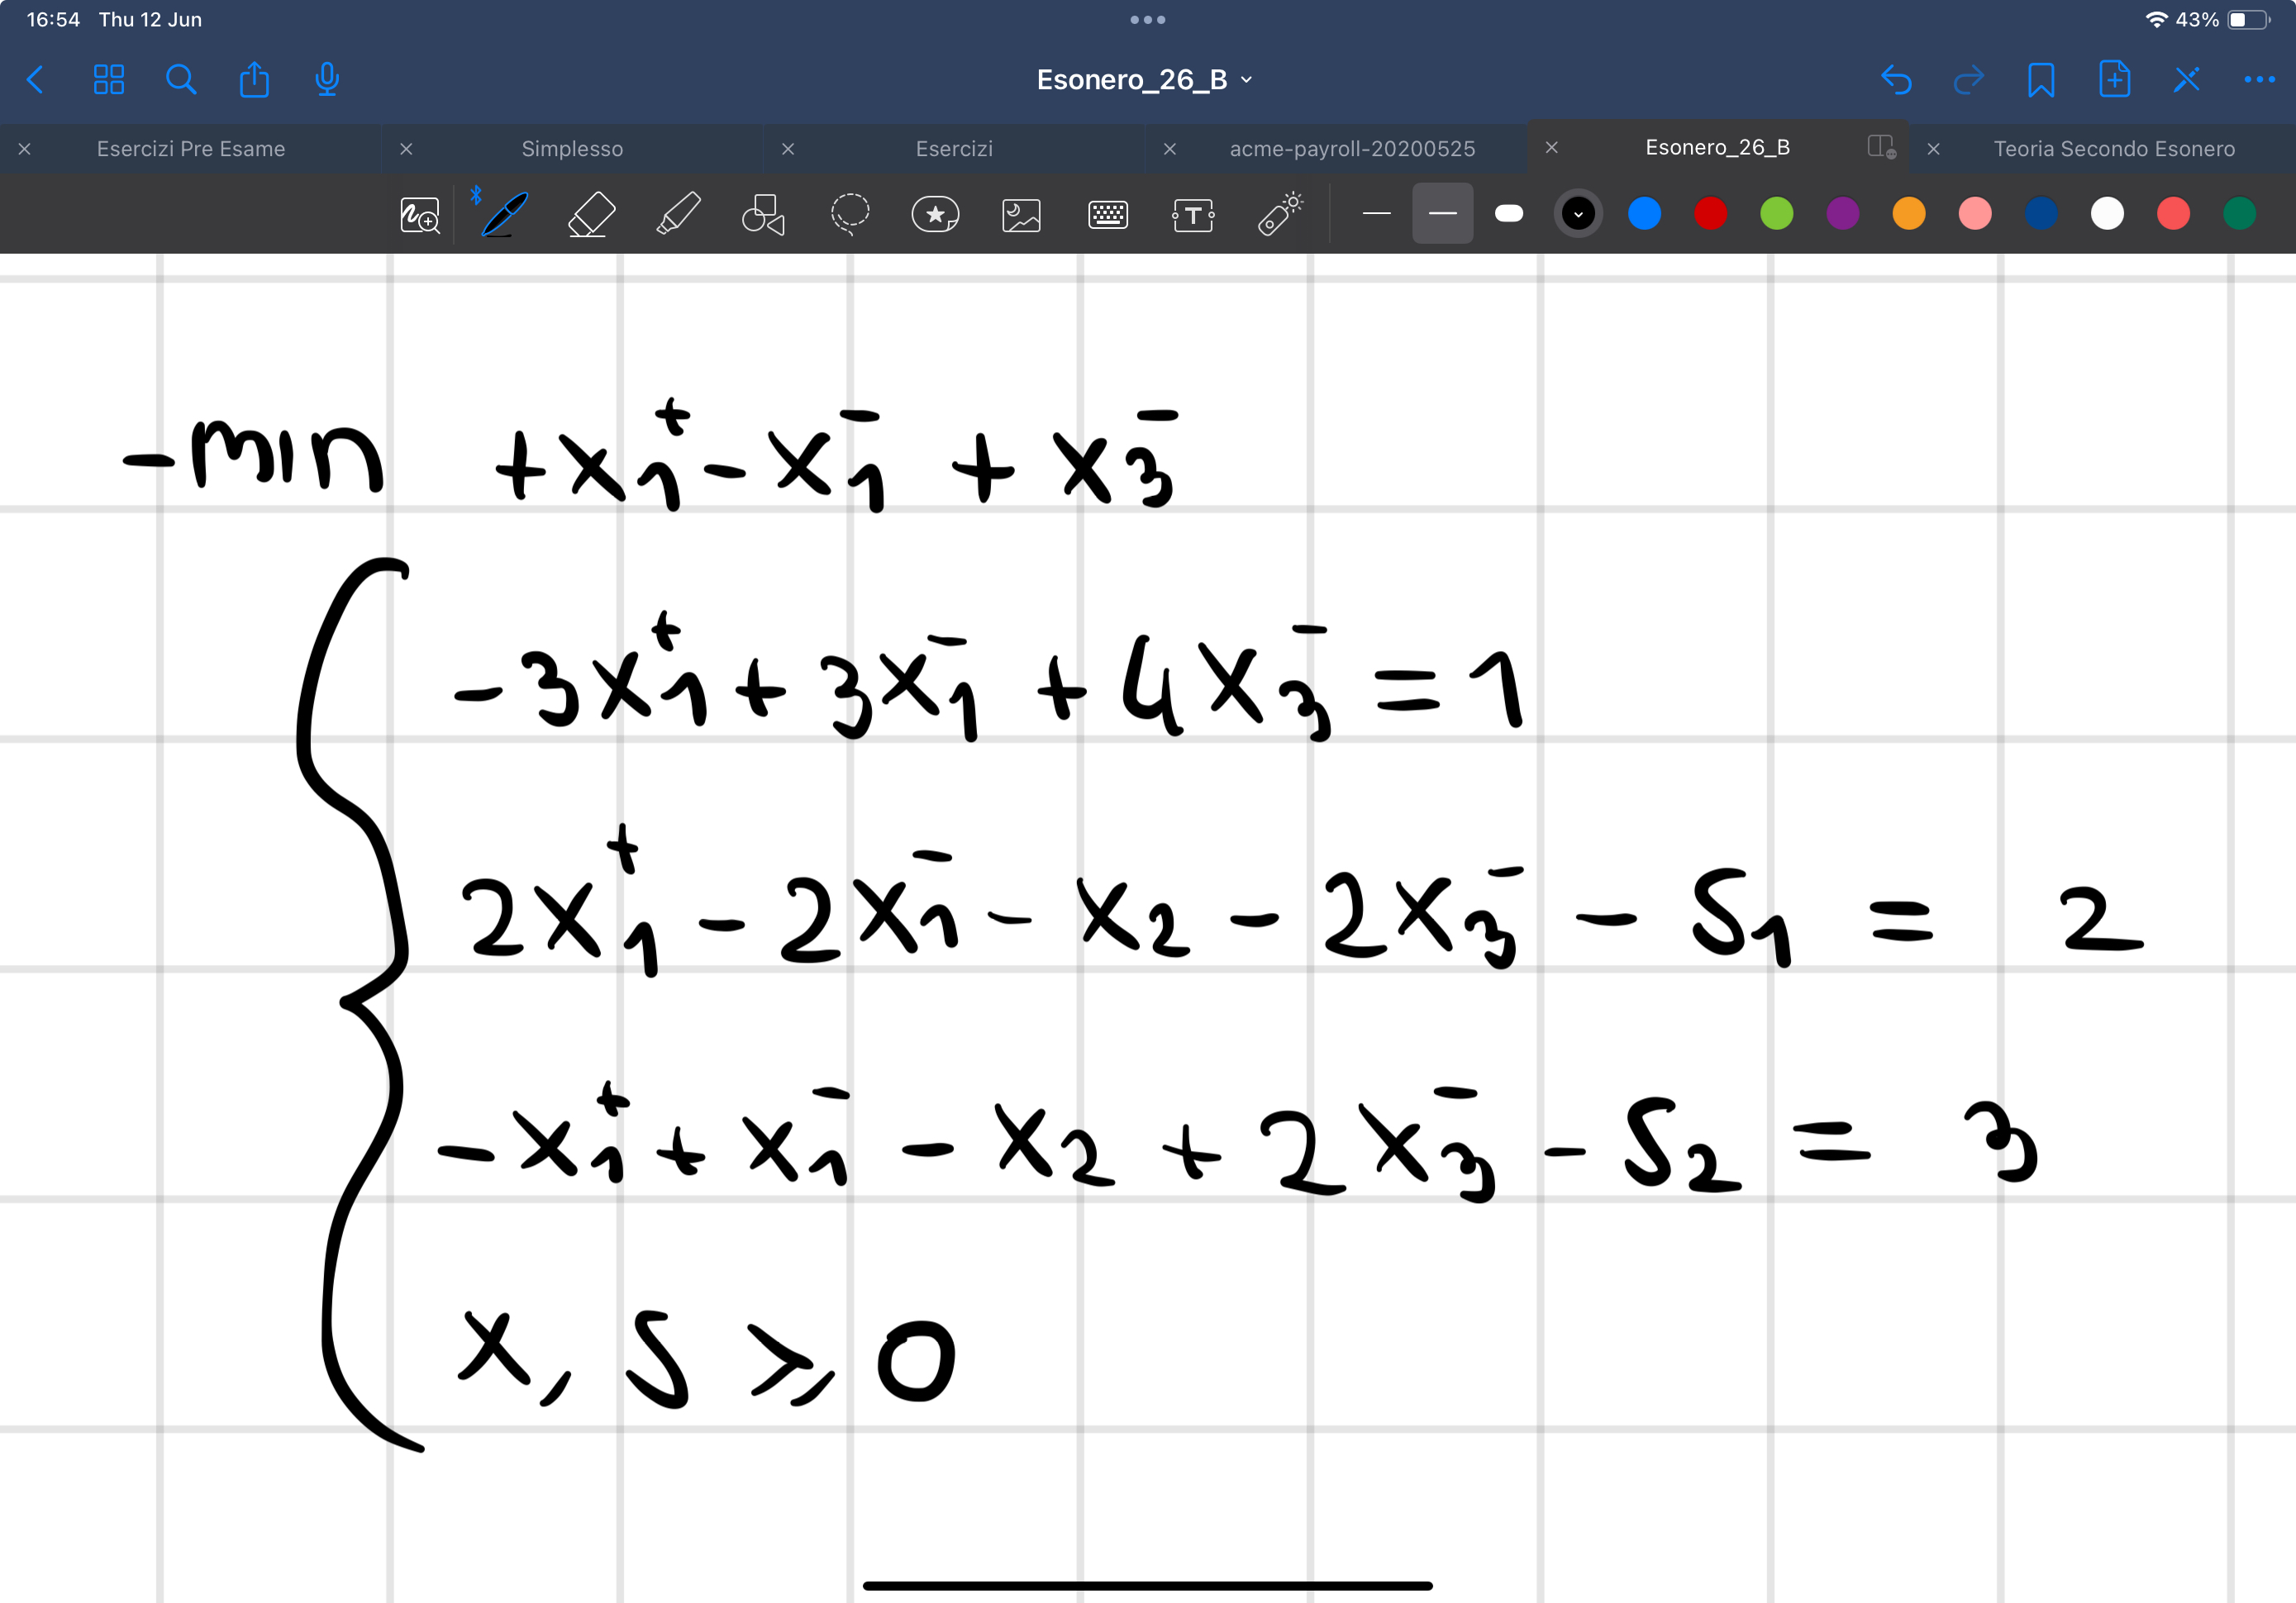 16:54 Thu 12 Jun
43%
Esonero_26_B
Esercizi Pre Esame
Simplesso
Esercizi
acme-payroll-20200525
Esonero_26_B
Teoria Secondo Esonero
T
-min +x₁⁺ - x₁⁻ + x₃⁻
-3x₁⁺ + 3x₁⁻ + 4x₃⁻ = 1
2x₁⁺ - 2x₁⁻ - x₂ - 2x₃⁻ - S₁ = 2
-x₁⁺ + x₁⁻ - x₂ + 2x₃⁻ - S₂ = 3
x, S ≥ 0